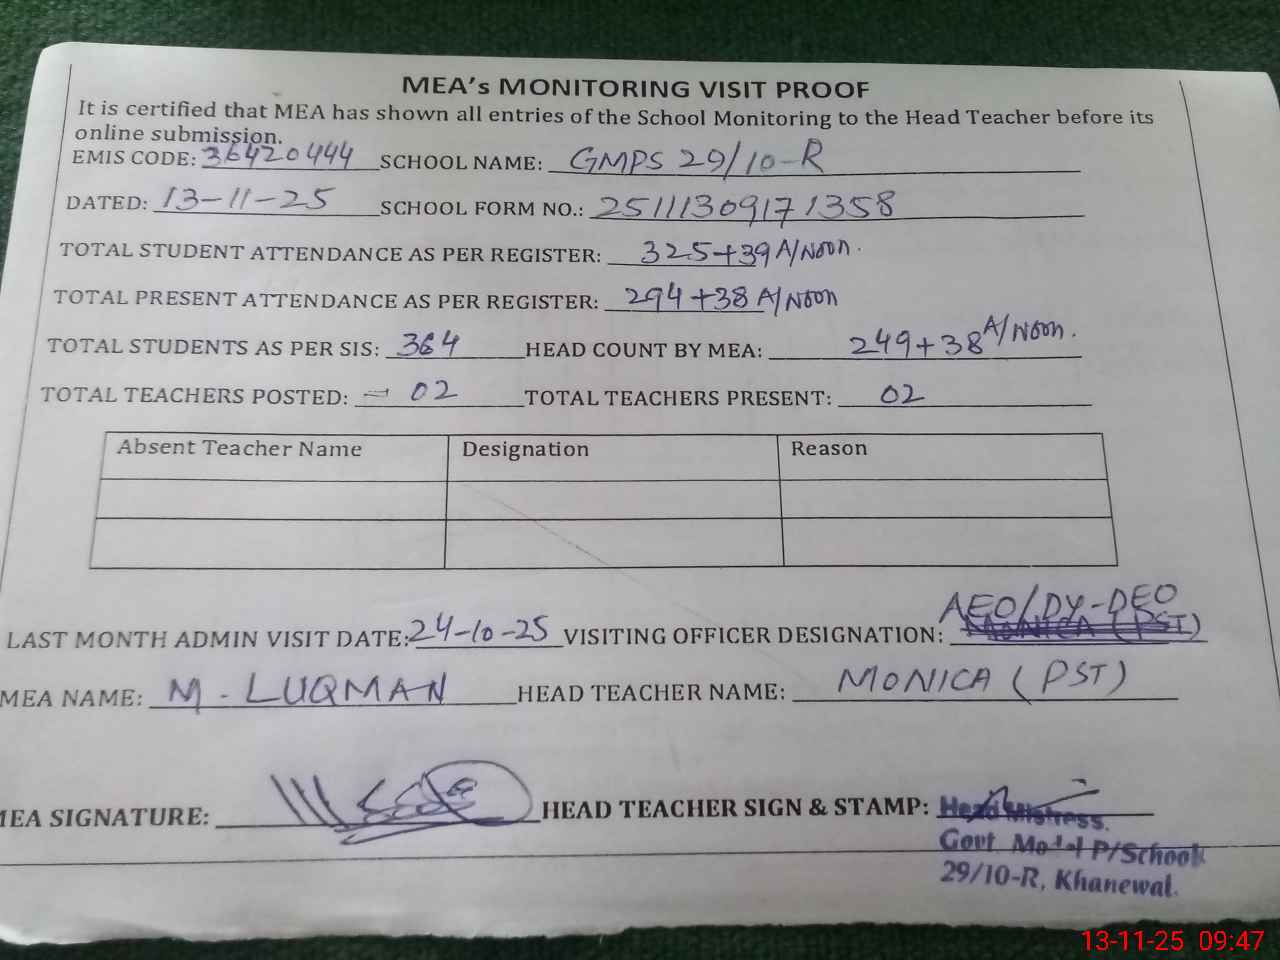 MEA's MONITORING VISIT PROOF
It is certified that MEA has shown all entries of the School Monitoring to the Head Teacher before its
online submission.
EMIS CODE: 36420444 SCHOOL NAME: GMPS 29/10-R
DATED: 13-11-25 SCHOOL FORM NO.: 25111309171358
TOTAL STUDENT ATTENDANCE AS PER REGISTER: 325+39 A/Noon.
TOTAL PRESENT ATTENDANCE AS PER REGISTER: 294+38 A/Noon
TOTAL STUDENTS AS PER SIS: 364 HEAD COUNT BY MEA: 249+38 A/Noon.
TOTAL TEACHERS POSTED: 02 TOTAL TEACHERS PRESENT: 02
Absent Teacher Name Designation Reason
AEO/DY-DEO
LAST MONTH ADMIN VISIT DATE: 24-10-25 VISITING OFFICER DESIGNATION: MONICA (PST)
MEA NAME: M. LUQMAN HEAD TEACHER NAME: MONICA (PST)
MEA SIGNATURE: HEAD TEACHER SIGN & STAMP: Head Mistress.
Govt Model P/School
29/10-R, Khanewal.
13-11-25 09:47